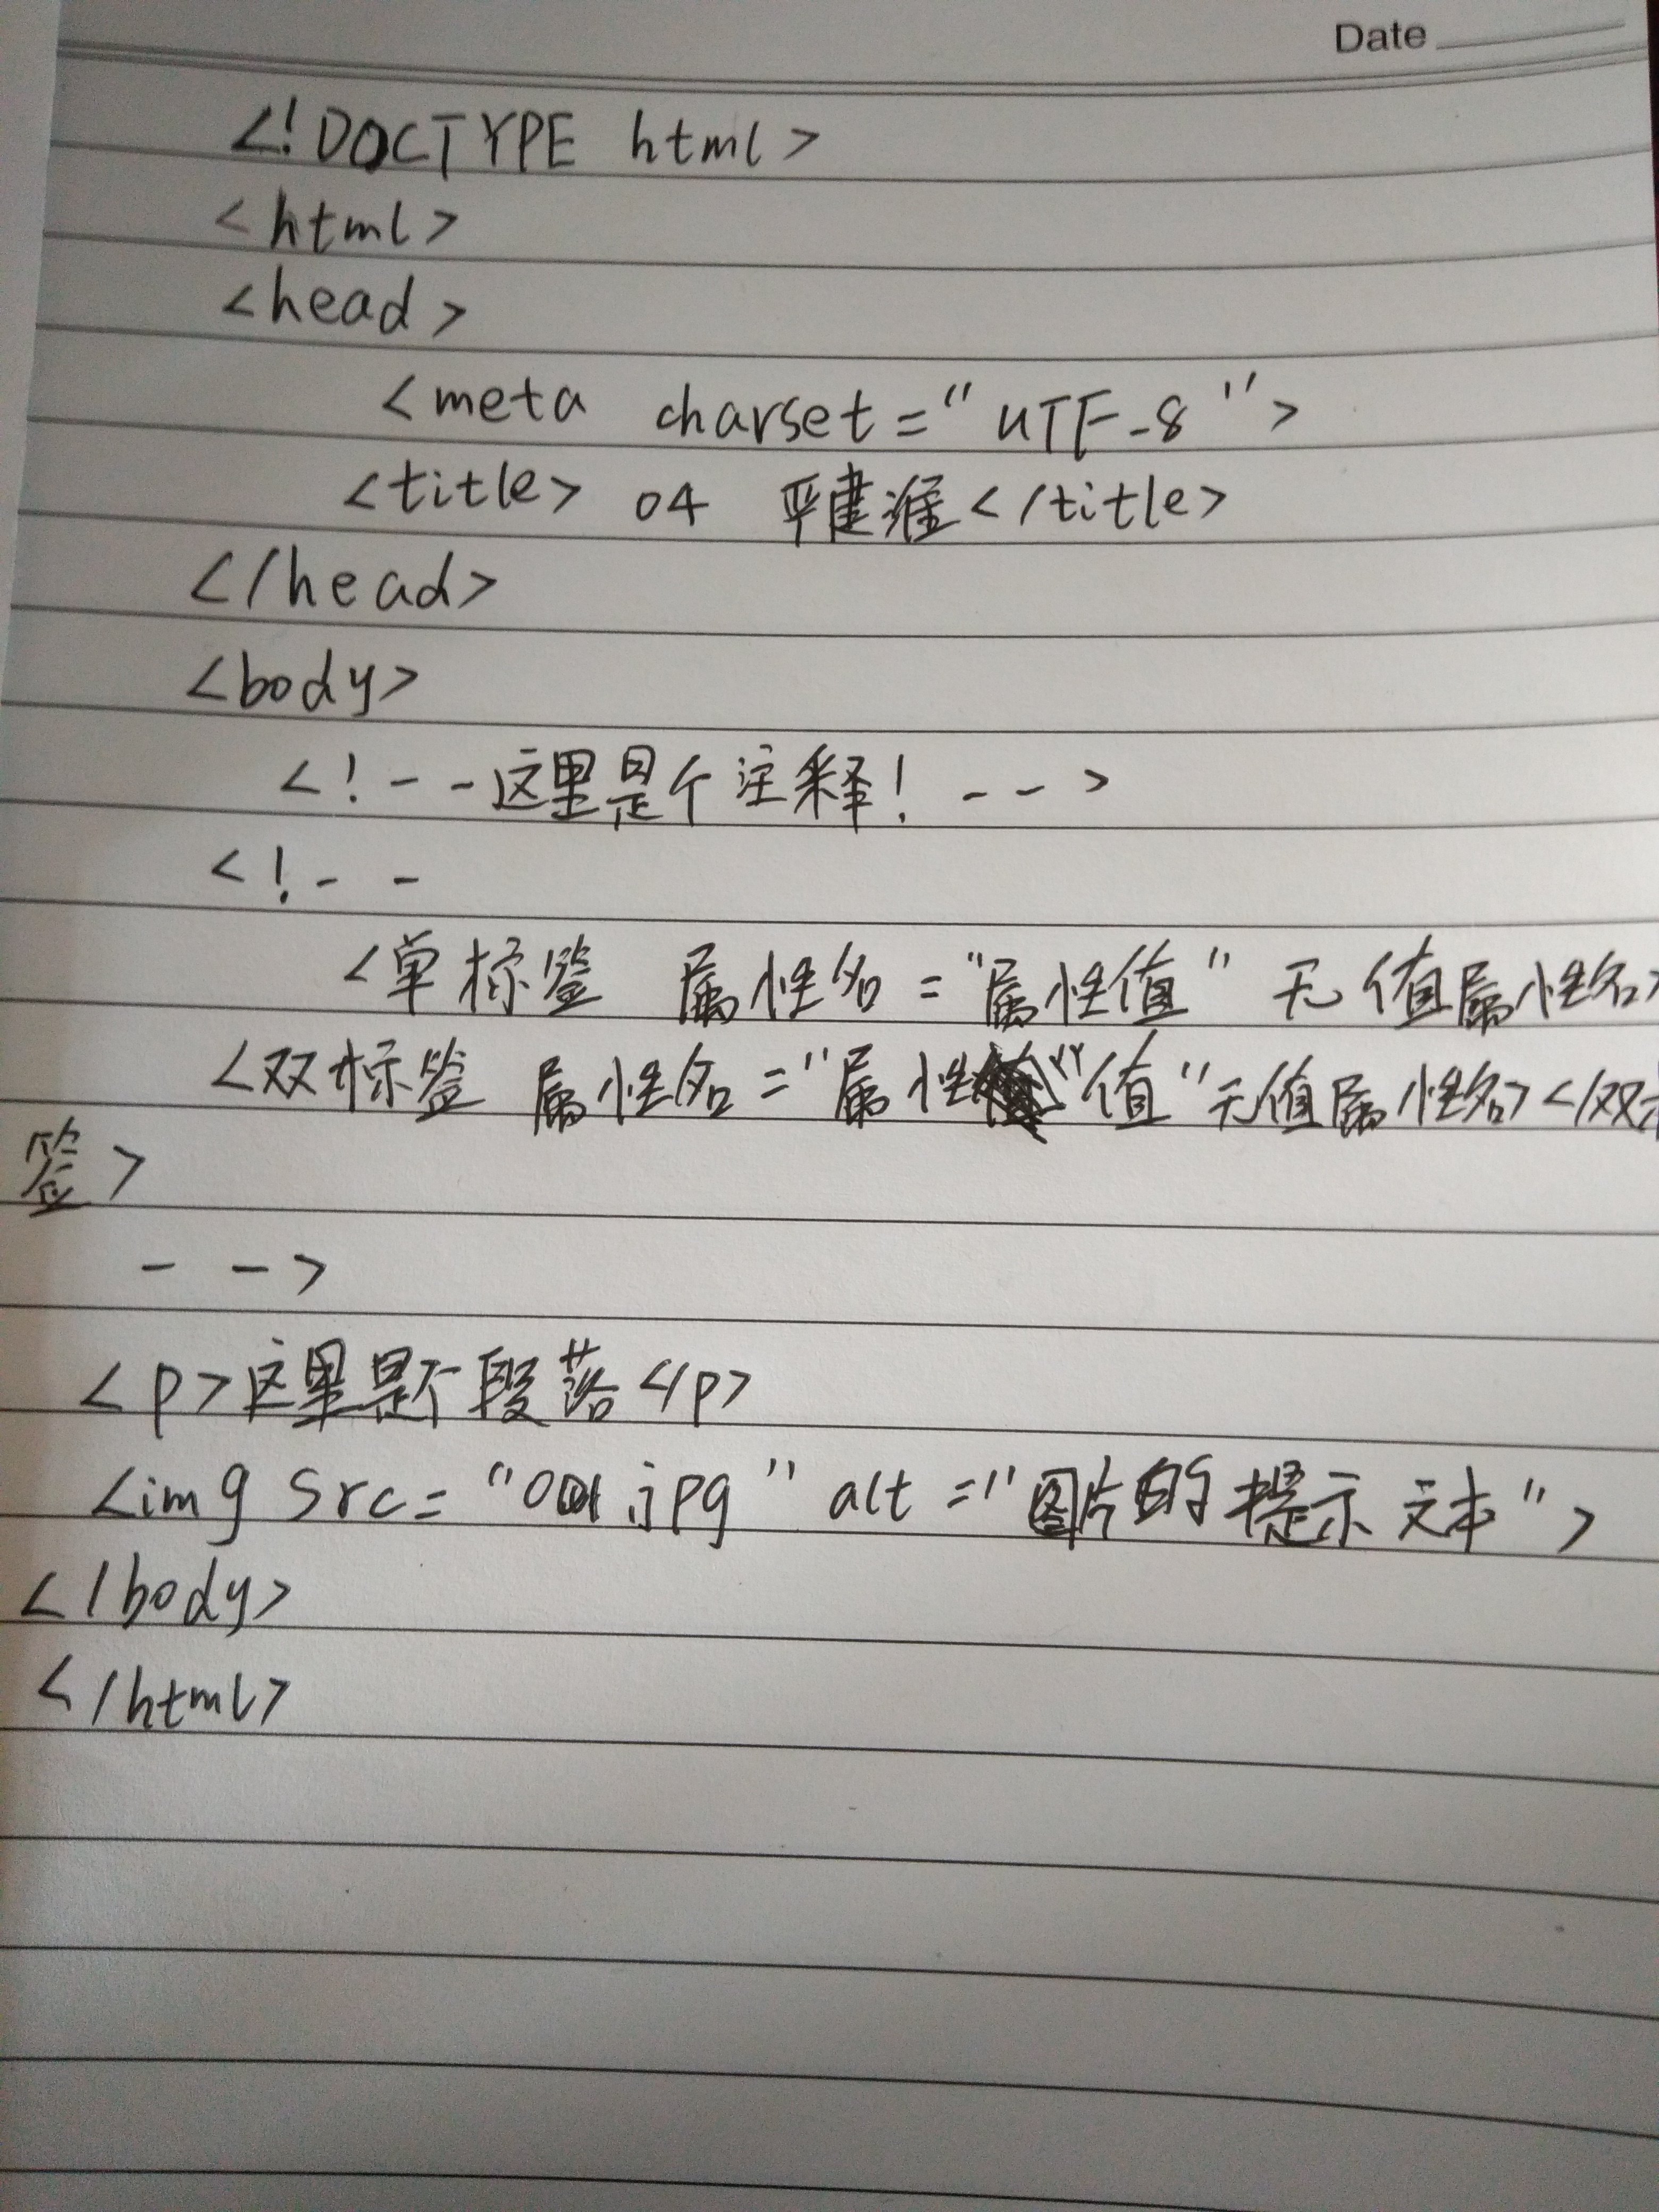 Date
<!DOCTYPE html>
<html>
<head>
<meta charset="UTF-8">
<title> 04 严建淮</title>
</head>
<body>
<!--这里是个注释! -->
<!--
<单标签 属性名="属性值" 无值属性名>
<双标签 属性名="属性"值"无值属性名></双标
签>
-->
<p>这里是个段落</p>
<img src="001.jpg" alt="图片的提示文本">
</body>
</html>